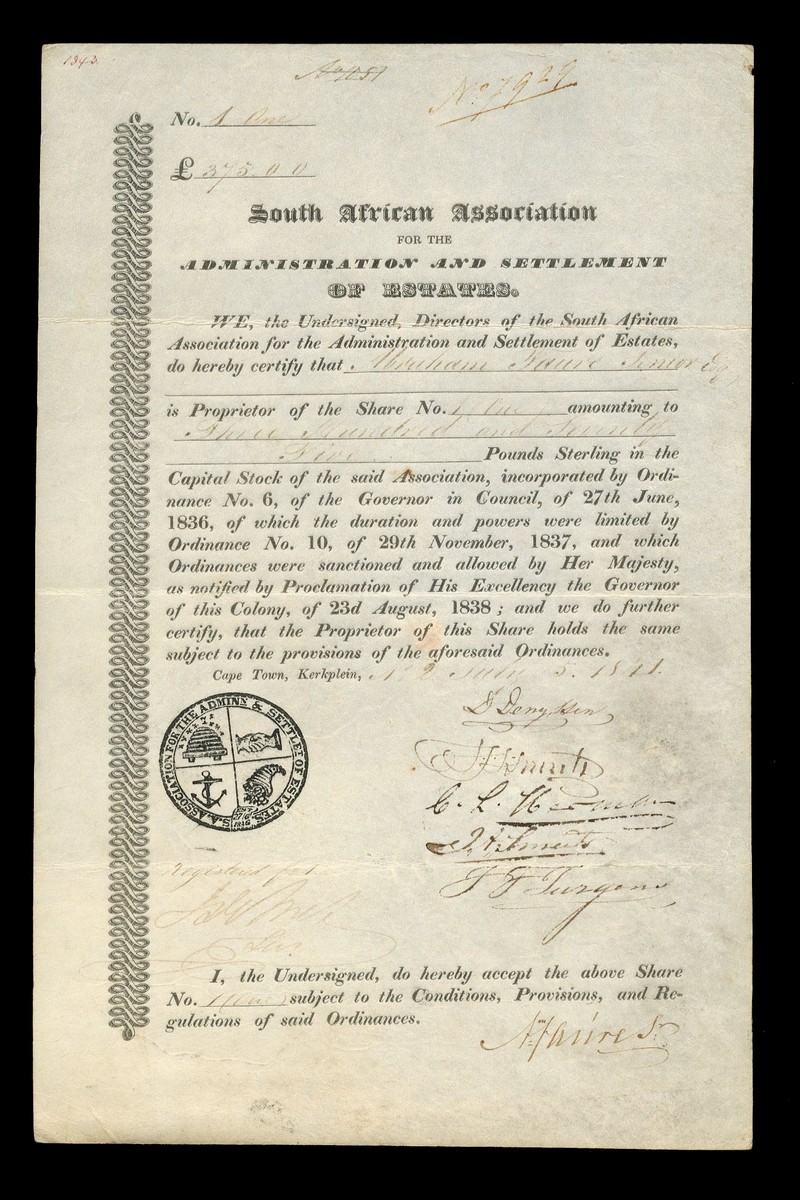 1343.
No 1051
No 7929
No. 1 One
£ 375.0.0
South African Association
FOR THE
ADMINISTRATION AND SETTLEMENT
OF ESTATES.
WE, the Undersigned, Directors of the South African
Association for the Administration and Settlement of Estates,
do hereby certify that Abraham Faure Senior Esq
is Proprietor of the Share No. 1 One amounting to
Three Hundred and Seventy
Five Pounds Sterling in the
Capital Stock of the said Association, incorporated by Ordi-
nance No. 6, of the Governor in Council, of 27th June,
1836, of which the duration and powers were limited by
Ordinance No. 10, of 29th November, 1837, and which
Ordinances were sanctioned and allowed by Her Majesty,
as notified by Proclamation of His Excellency the Governor
of this Colony, of 23d August, 1838 ; and we do further
certify, that the Proprietor of this Share holds the same
subject to the provisions of the aforesaid Ordinances.
Cape Town, Kerkplein, No 2 July 5. 1841.
S.A. ASSOCIATION FOR THE ADMINN & SETTLET OF ESTATES
D Denyssen
C. L. Herman
F F Jurgens
Registered
Sec.
I, the Undersigned, do hereby accept the above Share
No. 1 One subject to the Conditions, Provisions, and Re-
gulations of said Ordinances.
Am Faure Sr